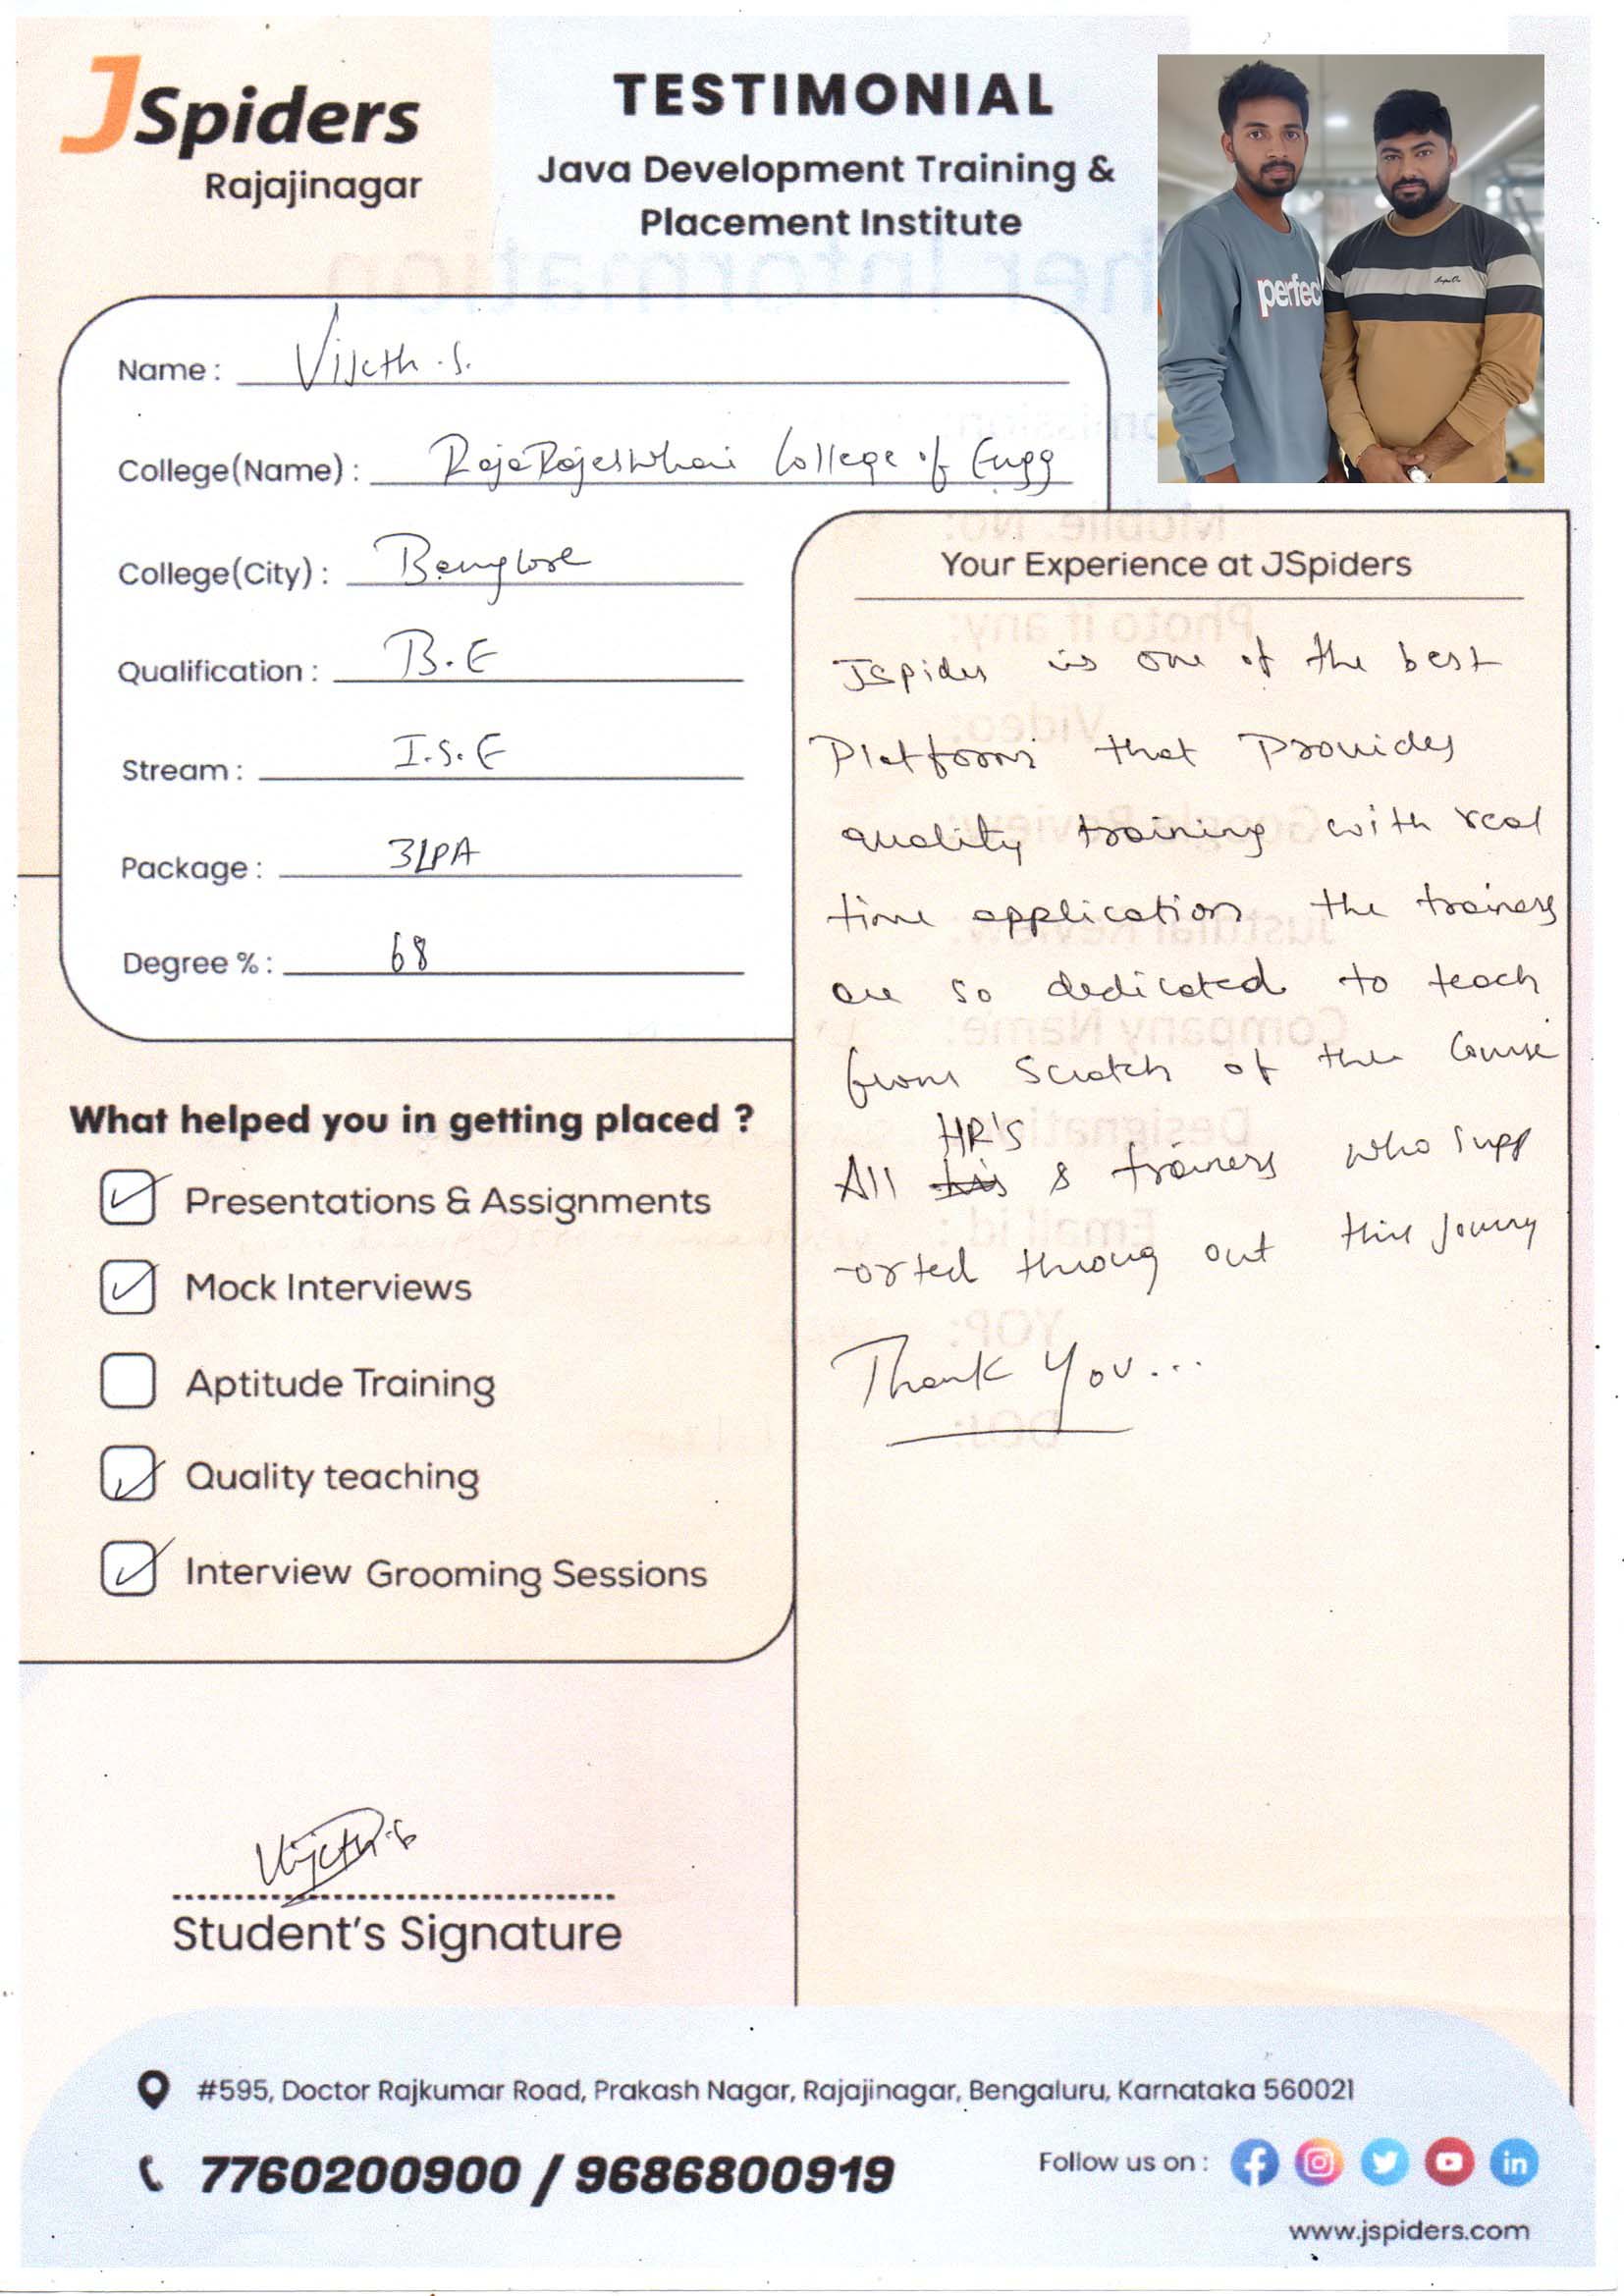 JSpiders
Rajajinagar
TESTIMONIAL
Java Development Training &
Placement Institute
perfec
Name : Vijeth .S.
College(Name) : RajaRajeshwhari College of Engg
College(City) : Banglore
Qualification : B.E
Stream : I.S.E
Package : 3LPA
Degree % : 68
What helped you in getting placed ?
Presentations & Assignments
Mock Interviews
Aptitude Training
Quality teaching
Interview Grooming Sessions
Vijeth.S
Student's Signature
Your Experience at JSpiders
JSpider is one of the best
Platform that Provides
quality training with real
time application the trainers
are so dedicated to teach
from scratch of the Course
HR'S
All & trainers who supp
-orted throug out this Journy
Thank You...
#595, Doctor Rajkumar Road, Prakash Nagar, Rajajinagar, Bengaluru, Karnataka 560021
7760200900 / 9686800919
Follow us on :
www.jspiders.com